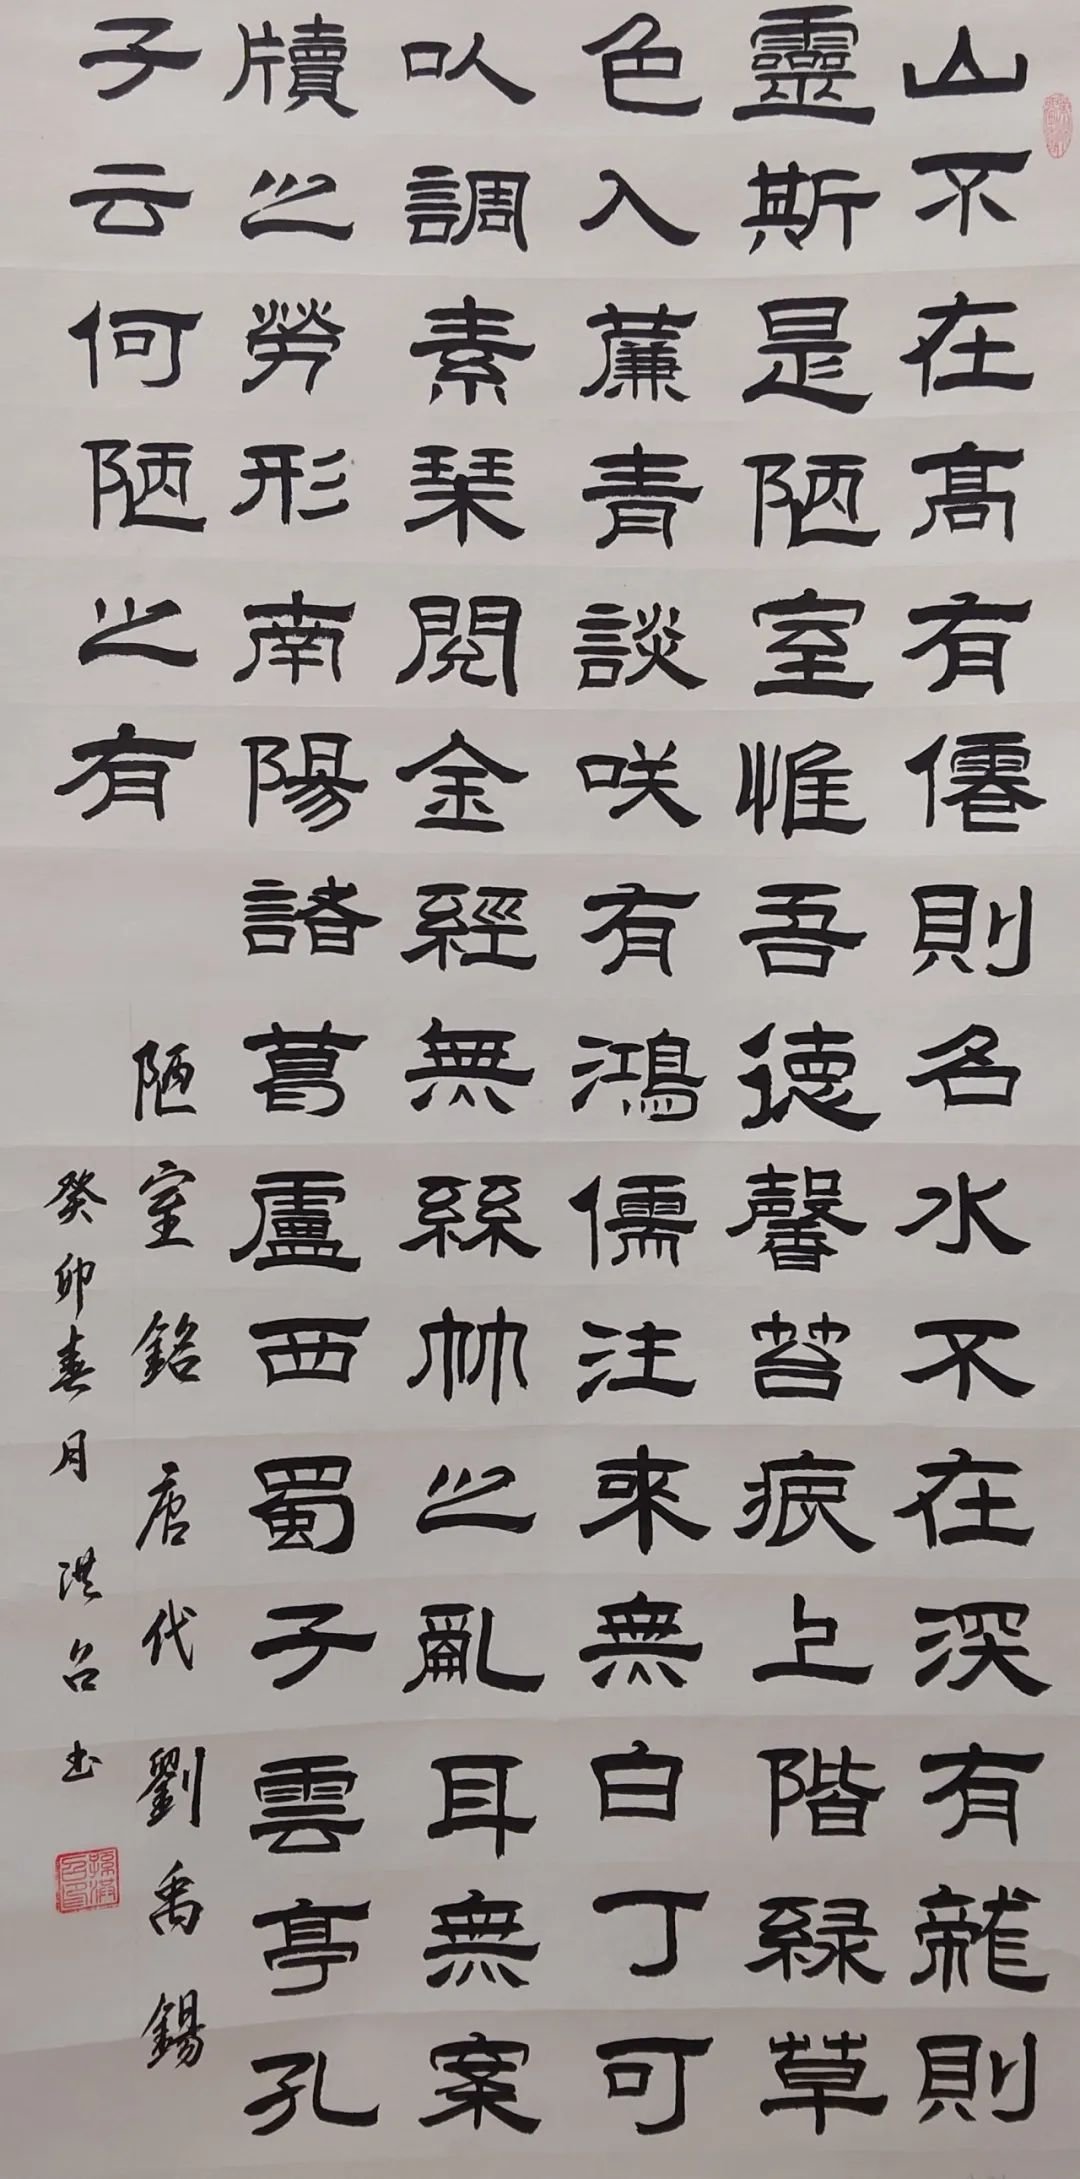 山不在髙有僊則名水不在深有龍則
靈斯是陋室惟吾德馨苔痕上階緑草
色入薕青談咲有鴻儒注来無白丁可
㕥調素琹閲金經無絲竹之亂耳無案
牘之勞形南陽諸葛廬西蜀子雲亭孔
子云何陋之有
陋室銘 唐代 劉禹錫
癸卯春月 洪召书